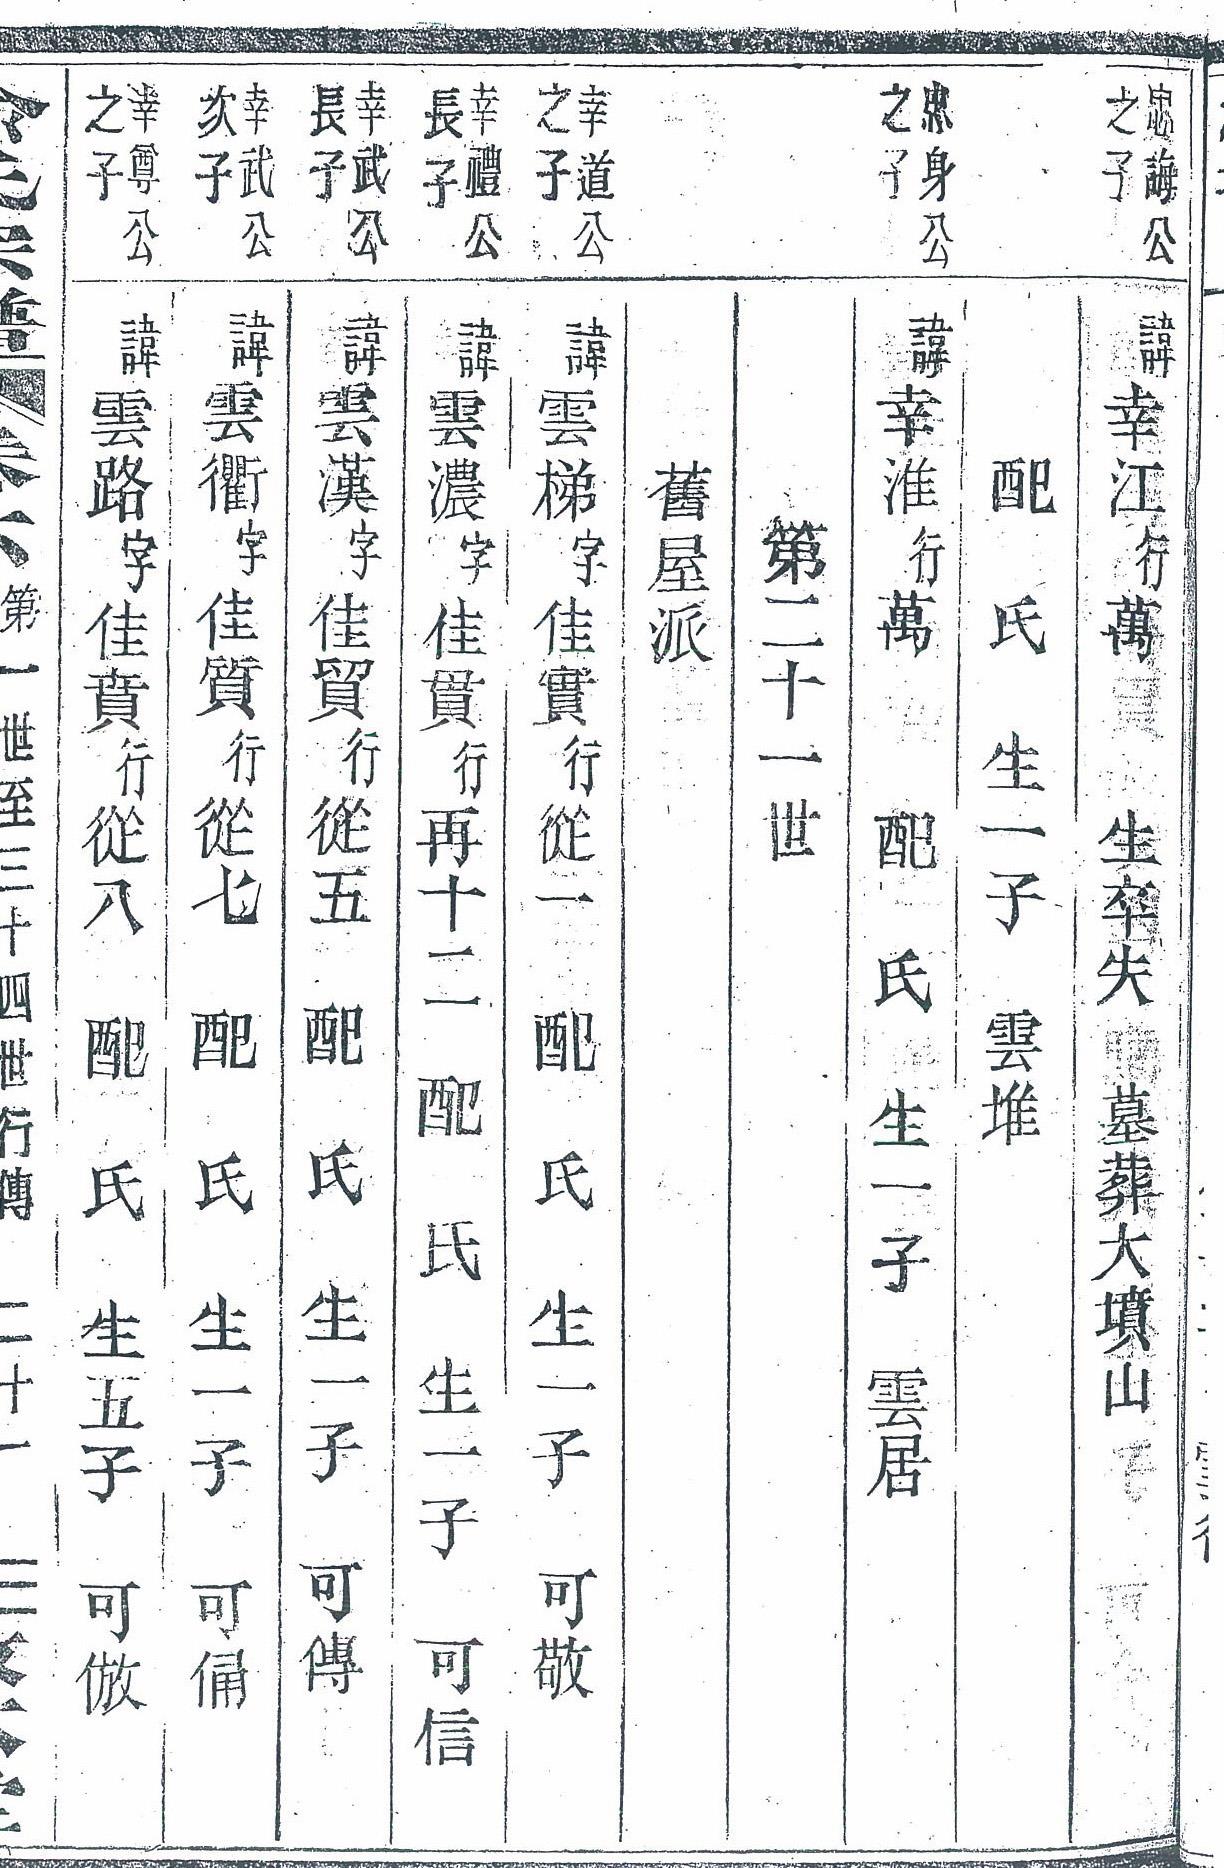 忠誨公之子
諱幸江行萬 生卒失 墓葬大墳山
配 氏 生一子 雲堆
忠身公之子
諱幸淮行萬 配 氏 生一子 雲居
第二十一世
舊屋派
幸道公之子
諱雲梯字佳實行從一 配 氏 生一子 可敬
幸禮公長子
諱雲濃字佳貫行再十二 配 氏 生一子 可信
幸武公長子
諱雲漢字佳貿行從五 配 氏 生一子 可傳
幸武公次子
諱雲衢字佳質行從七 配 氏 生一子 可俑
幸尊公之子
諱雲路字佳賁行從八 配 氏 生五子 可倣
第一世至三十四世行傳 二十一